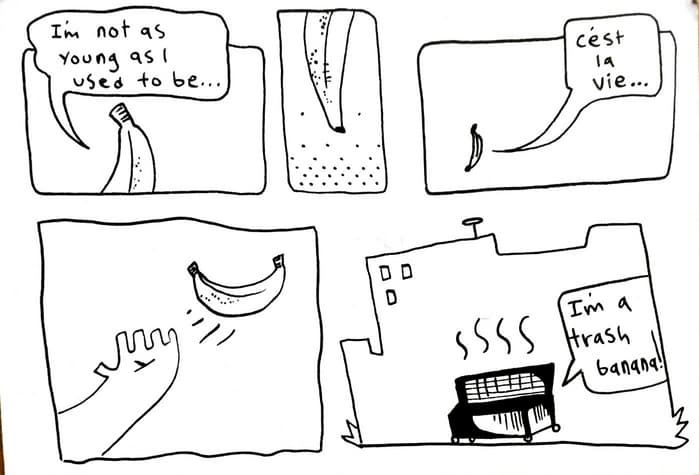 I'm not as
young as I
used to be...
c'est
la
vie...
I'm a
trash
banana!